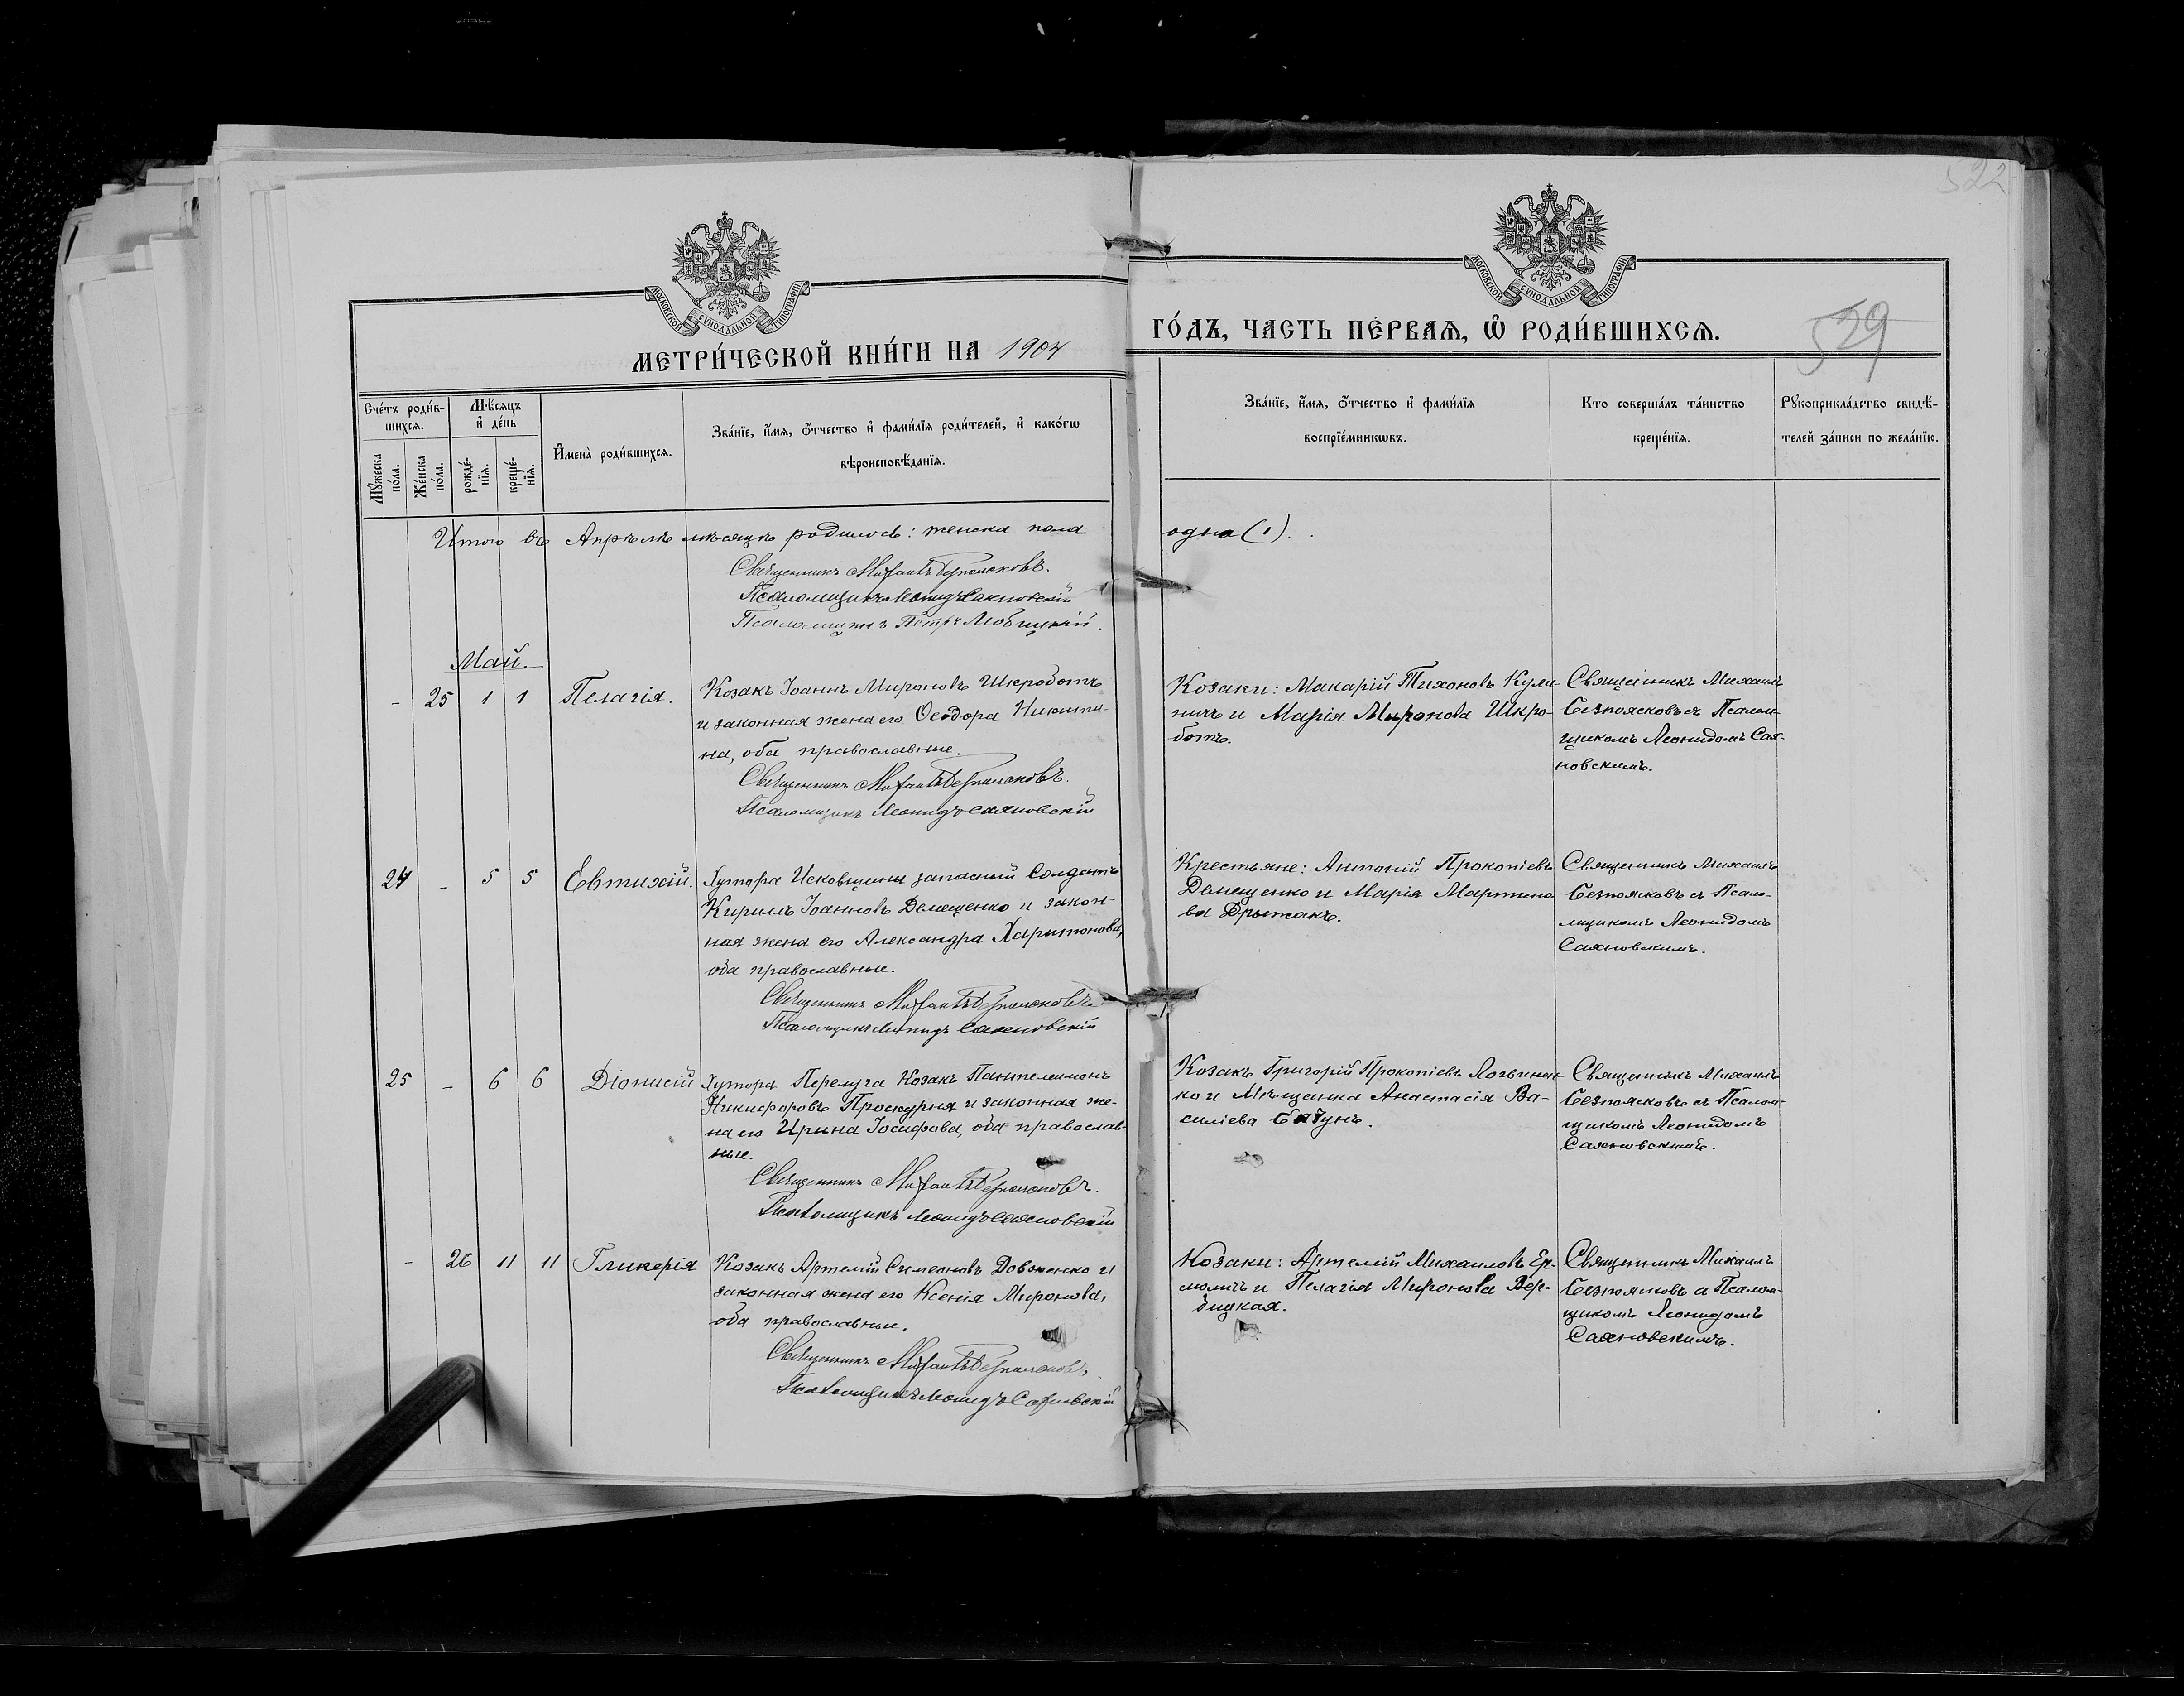 522
529
МОСКОВСКОЙ СѴНОДАЛЬНОЙ ТИПОГРАФІИ
МОСКОВСКОЙ СѴНОДАЛЬНОЙ ТИПОГРАФІИ
МЕТРИ́ЧЕСКОЙ КНИ́ГИ НА 1904
ГО́ДЪ, ЧАСТЬ ПЕ́РВАЯ, Ѽ РОДИ́ВШИХСЯ.
Сче́тъ роди́в-
шихся.
Му́жеска
по́ла.
Же́нска
по́ла.
Мѣ́сяцъ
и҆ де́нь
рожде́-
нїя.
креще́-
нїя.
И҆мена̀ роди́вшихся.
Зва́нїе, и҆́мя, ѻ҆́тчество и҆ фами́лїя роди́телей, и҆ како́гѡ
вѣроисповѣ́данїя.
Зва́нїе, и҆́мя, ѻ҆́тчество и҆ фами́лїя
воспрїе́мникѡвъ.
Кто соверша́лъ та́инство
креще́нїя.
Рꙋкоприкла́дство свидѣ́-
телей за́писи по жела́нїю.
Итого въ Апрѣлѣ мѣсяцѣ родилось: женска пола
одна (1).
Священникъ Михаилъ Безпоясковъ.
Псаломщикъ Леонидъ Сахновскій
Псаломщикъ Петръ
Май.
- 25 1 1 Пелагія.
Козакъ Іоаннъ Мироновъ Шкроботъ
и законная жена его Ѳеодора Никити-
на, оба православные.
Священникъ Михаилъ Безпоясковъ.
Псаломщикъ Леонидъ Сахновскій
Козаки: Макарій Тихоновъ Кули-
ничъ и Марія Миронова Шкро-
ботъ.
Священникъ Михаилъ
Безпоясковъ съ Псалом-
щикомъ Леонидомъ Сах-
новскимъ.
24 - 5 5 Евтихій.
Хутора Исковщины запасный Солдатъ
Кириллъ Іоанновъ Демещенко и закон-
ная жена его Александра Харитонова,
оба православные.
Священникъ Михаилъ Безпоясковъ.
Псаломщикъ Леонидъ Сахновскій
Крестьяне: Антоній Прокопіевъ
Демещенко и Марія Мартино-
ва Брыжакъ.
Священникъ Михаилъ
Безпоясковъ съ Псало-
мщикомъ Леонидомъ
Сахновскимъ.
25 - 6 6 Діонисій
Хутора Перелуга Козакъ Пантелеимонъ
Никифоровъ Проскурня и законная же-
на его Ирина Іосифова, оба православ-
ные.
Священникъ Михаилъ Безпоясковъ.
Псаломщикъ Леонидъ Сахновскій
Козакъ Григорій Прокопіевъ Логвинен-
ко и Мѣщанка Анастасія Ва-
силіева
Священникъ Михаилъ
Безпоясковъ съ Псалом-
щикомъ Леонидомъ
Сахновскимъ.
- 26 11 11 Гликерія
Козакъ Артемій Симеоновъ Довженко и
законная жена его Ксенія Миронова,
оба православные.
Священникъ Михаилъ Безпоясковъ.
Псаломщикъ Леонидъ Сахновскій
Козаки: Артемій Михаиловъ Ер-
моличъ и Пелагія Миронова Вер-
бицкая.
Священникъ Михаилъ
Безпоясковъ съ Псалом-
щикомъ Леонидомъ
Сахновскимъ.